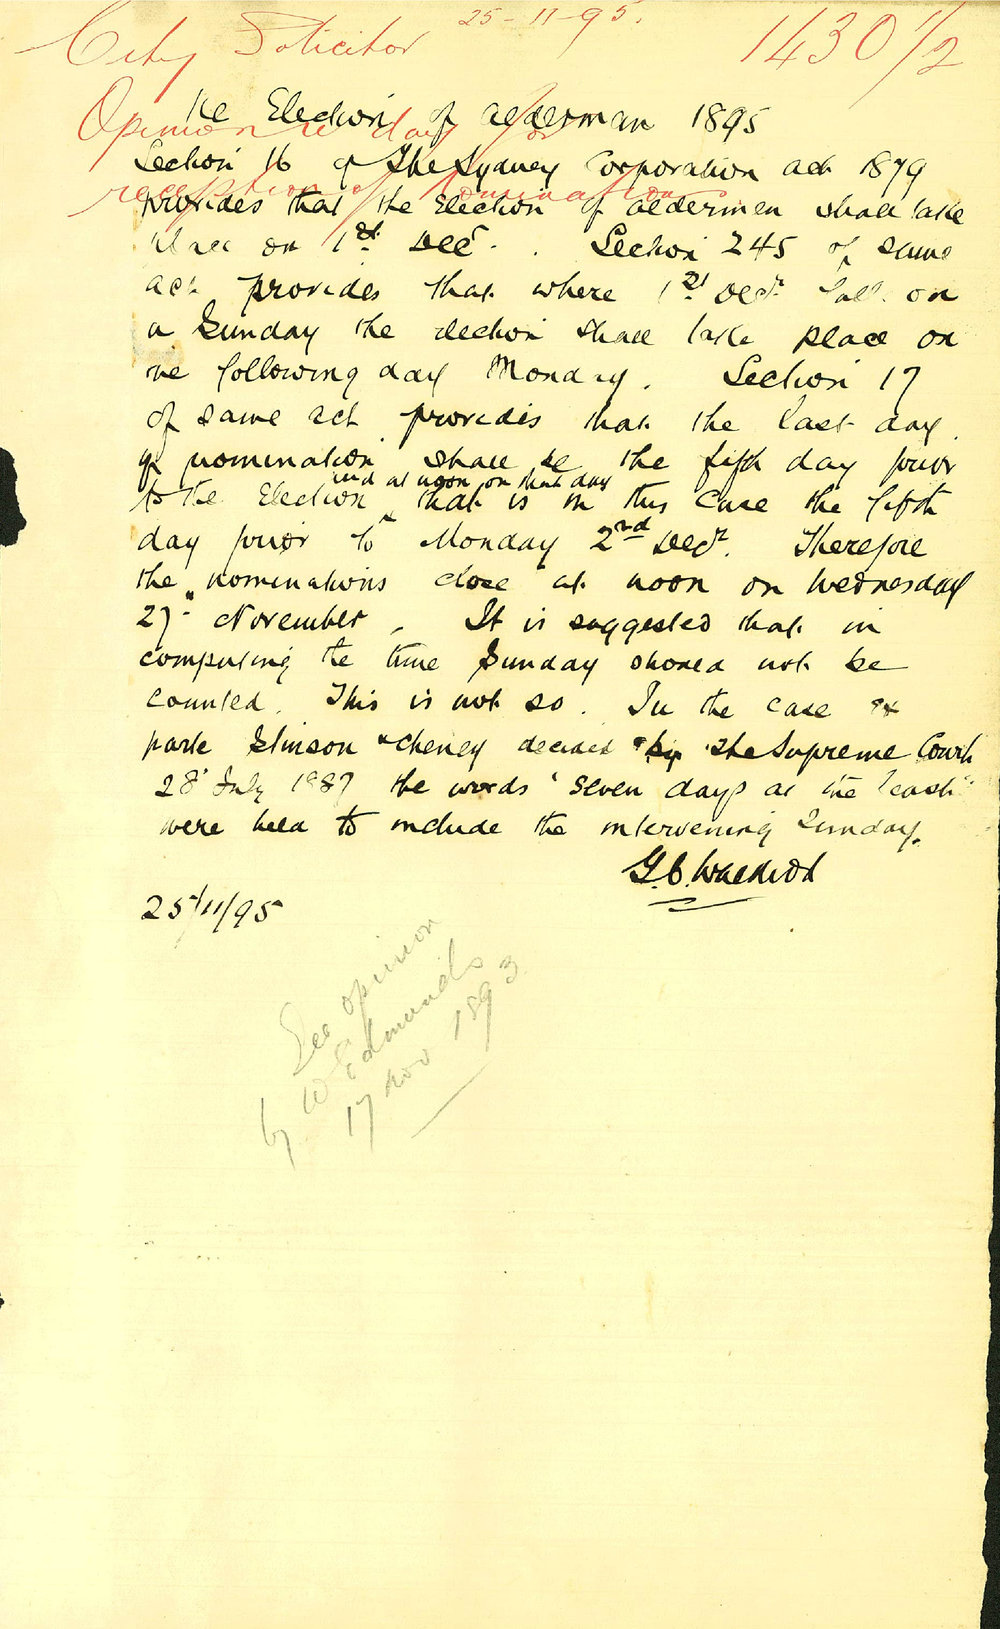 City Solicitor 25-11-95.
1430 1/2
Opinion re day for
reception of nominations
Re Election of alderman 1895
Section 16 of The Sydney Corporation act 1879
provides that the Election of aldermen shall take
place on 1st Decr. Section 245 of same
act provides that where 1st Decr falls on
a Sunday the election shall take place on
the following day Monday. Section 17
of same act provides that the last day
of nomination shall be the fifth day prior
and at noon on that day
to the Election that is in this case the fifth
day prior to Monday 2nd Decr. Therefore
the nominations close at noon on Wednesday
27 November. It is suggested that in
computing the time Sunday should not be
counted. This is not so. In the case ex
parte & Cheney decided by the Supreme Court
28 July 1887 the words "seven days at the least"
were held to include the intervening Sunday.
G.C.
25/11/95
See opinion
by W Edmunds
17 Nov 1893